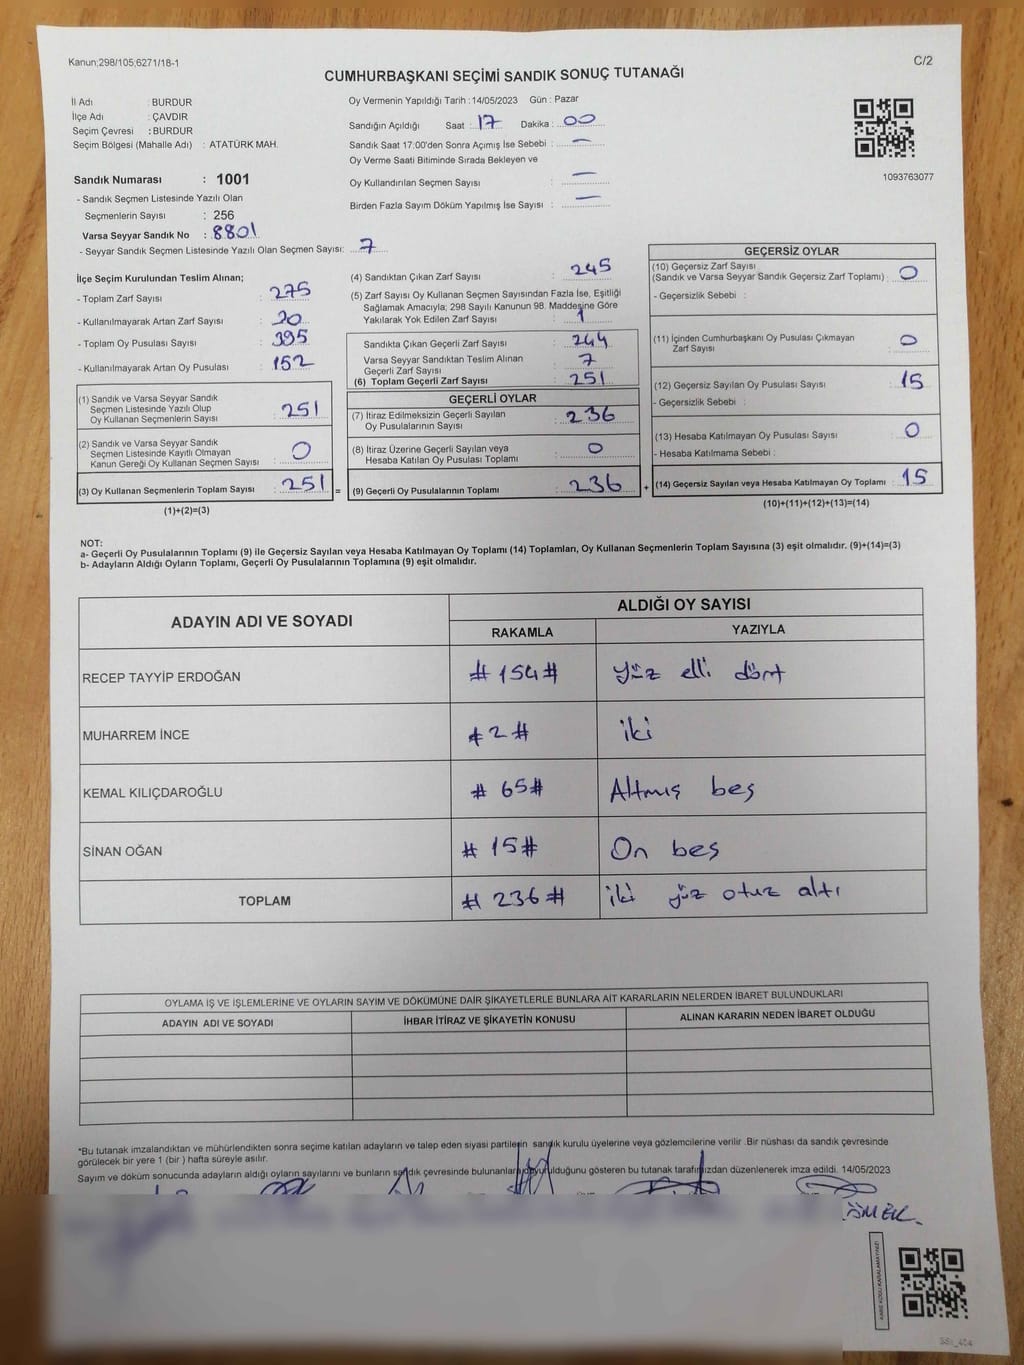 Kanun;298/105;6271/18-1
C/2
CUMHURBAŞKANI SEÇİMİ SANDIK SONUÇ TUTANAĞI
İl Adı : BURDUR
İlçe Adı : ÇAVDIR
Seçim Çevresi : BURDUR
Seçim Bölgesi (Mahalle Adı) : ATATÜRK MAH.
Oy Vermenin Yapıldığı Tarih :14/05/2023 Gün : Pazar
Sandığın Açıldığı Saat : 17 Dakika : 00
Sandık Saat 17:00'den Sonra Açımış İse Sebebi : —
Oy Verme Saati Bitiminde Sırada Bekleyen ve
Oy Kullandırılan Seçmen Sayısı : —
Birden Fazla Sayım Döküm Yapılmış İse Sayısı : —
1093763077
Sandık Numarası : 1001
- Sandık Seçmen Listesinde Yazılı Olan
Seçmenlerin Sayısı : 256
Varsa Seyyar Sandık No : 8801
- Seyyar Sandık Seçmen Listesinde Yazılı Olan Seçmen Sayısı: 7
İlçe Seçim Kurulundan Teslim Alınan;
- Toplam Zarf Sayısı : 275
- Kullanılmayarak Artan Zarf Sayısı : 20
- Toplam Oy Pusulası Sayısı : 395
- Kullanılmayarak Artan Oy Pusulası : 152
(1) Sandık ve Varsa Seyyar Sandık
Seçmen Listesinde Yazılı Olup
Oy Kullanan Seçmenlerin Sayısı : 251
(2) Sandık ve Varsa Seyyar Sandık
Seçmen Listesinde Kayıtlı Olmayan
Kanun Gereği Oy Kullanan Seçmen Sayısı : 0
(3) Oy Kullanan Seçmenlerin Toplam Sayısı : 251
(1)+(2)=(3)
(4) Sandıktan Çıkan Zarf Sayısı : 245
(5) Zarf Sayısı Oy Kullanan Seçmen Sayısından Fazla İse, Eşitliği
Sağlamak Amacıyla; 298 Sayılı Kanunun 98. Maddesine Göre
Yakılarak Yok Edilen Zarf Sayısı : 1
Sandıkta Çıkan Geçerli Zarf Sayısı : 244
Varsa Seyyar Sandıktan Teslim Alınan
Geçerli Zarf Sayısı : 7
(6) Toplam Geçerli Zarf Sayısı : 251
GEÇERLİ OYLAR
(7) İtiraz Edilmeksizin Geçerli Sayılan
Oy Pusulalarının Sayısı : 236
(8) İtiraz Üzerine Geçerli Sayılan veya
Hesaba Katılan Oy Pusulası Toplamı : 0
= (9) Geçerli Oy Pusulalarının Toplamı : 236
GEÇERSİZ OYLAR
(10) Geçersiz Zarf Sayısı
(Sandık ve Varsa Seyyar Sandık Geçersiz Zarf Toplamı) : 0
- Geçersizlik Sebebi :
(11) İçinden Cumhurbaşkanı Oy Pusulası Çıkmayan
Zarf Sayısı : 0
(12) Geçersiz Sayılan Oy Pusulası Sayısı : 15
- Geçersizlik Sebebi :
(13) Hesaba Katılmayan Oy Pusulası Sayısı : 0
- Hesaba Katılmama Sebebi :
+ (14) Geçersiz Sayılan veya Hesaba Katılmayan Oy Toplamı : 15
(10)+(11)+(12)+(13)=(14)
NOT:
a- Geçerli Oy Pusulalarının Toplamı (9) ile Geçersiz Sayılan veya Hesaba Katılmayan Oy Toplamı (14) Toplamları, Oy Kullanan Seçmenlerin Toplam Sayısına (3) eşit olmalıdır. (9)+(14)=(3)
b- Adayların Aldığı Oyların Toplamı, Geçerli Oy Pusulalarının Toplamına (9) eşit olmalıdır.
ADAYIN ADI VE SOYADI
ALDIĞI OY SAYISI
RAKAMLA YAZIYLA
RECEP TAYYİP ERDOĞAN # 154 # Yüz elli dört
MUHARREM İNCE # 2 # iki
KEMAL KILIÇDAROĞLU # 65 # Altmış beş
SİNAN OĞAN # 15 # On beş
TOPLAM # 236 # iki yüz otuz altı
OYLAMA İŞ VE İŞLEMLERİNE VE OYLARIN SAYIM VE DÖKÜMÜNE DAİR ŞİKAYETLERLE BUNLARA AİT KARARLARIN NELERDEN İBARET BULUNDUKLARI
ADAYIN ADI VE SOYADI İHBAR İTİRAZ VE ŞİKAYETİN KONUSU ALINAN KARARIN NEDEN İBARET OLDUĞU
*Bu tutanak imzalandıktan ve mühürlendikten sonra seçime katılan adayların ve talep eden siyasi partilerin sandık kurulu üyelerine veya gözlemcilerine verilir .Bir nüshası da sandık çevresinde
görülecek bir yere 1 (bir ) hafta süreyle asılır.
Sayım ve döküm sonucunda adayların aldığı oyların sayılarını ve bunların sandık çevresinde bulunanlara duyurulduğunu gösteren bu tutanak tarafımızdan düzenlenerek imza edildi. 14/05/2023
KARE KODU KARALAMAYINIZ!